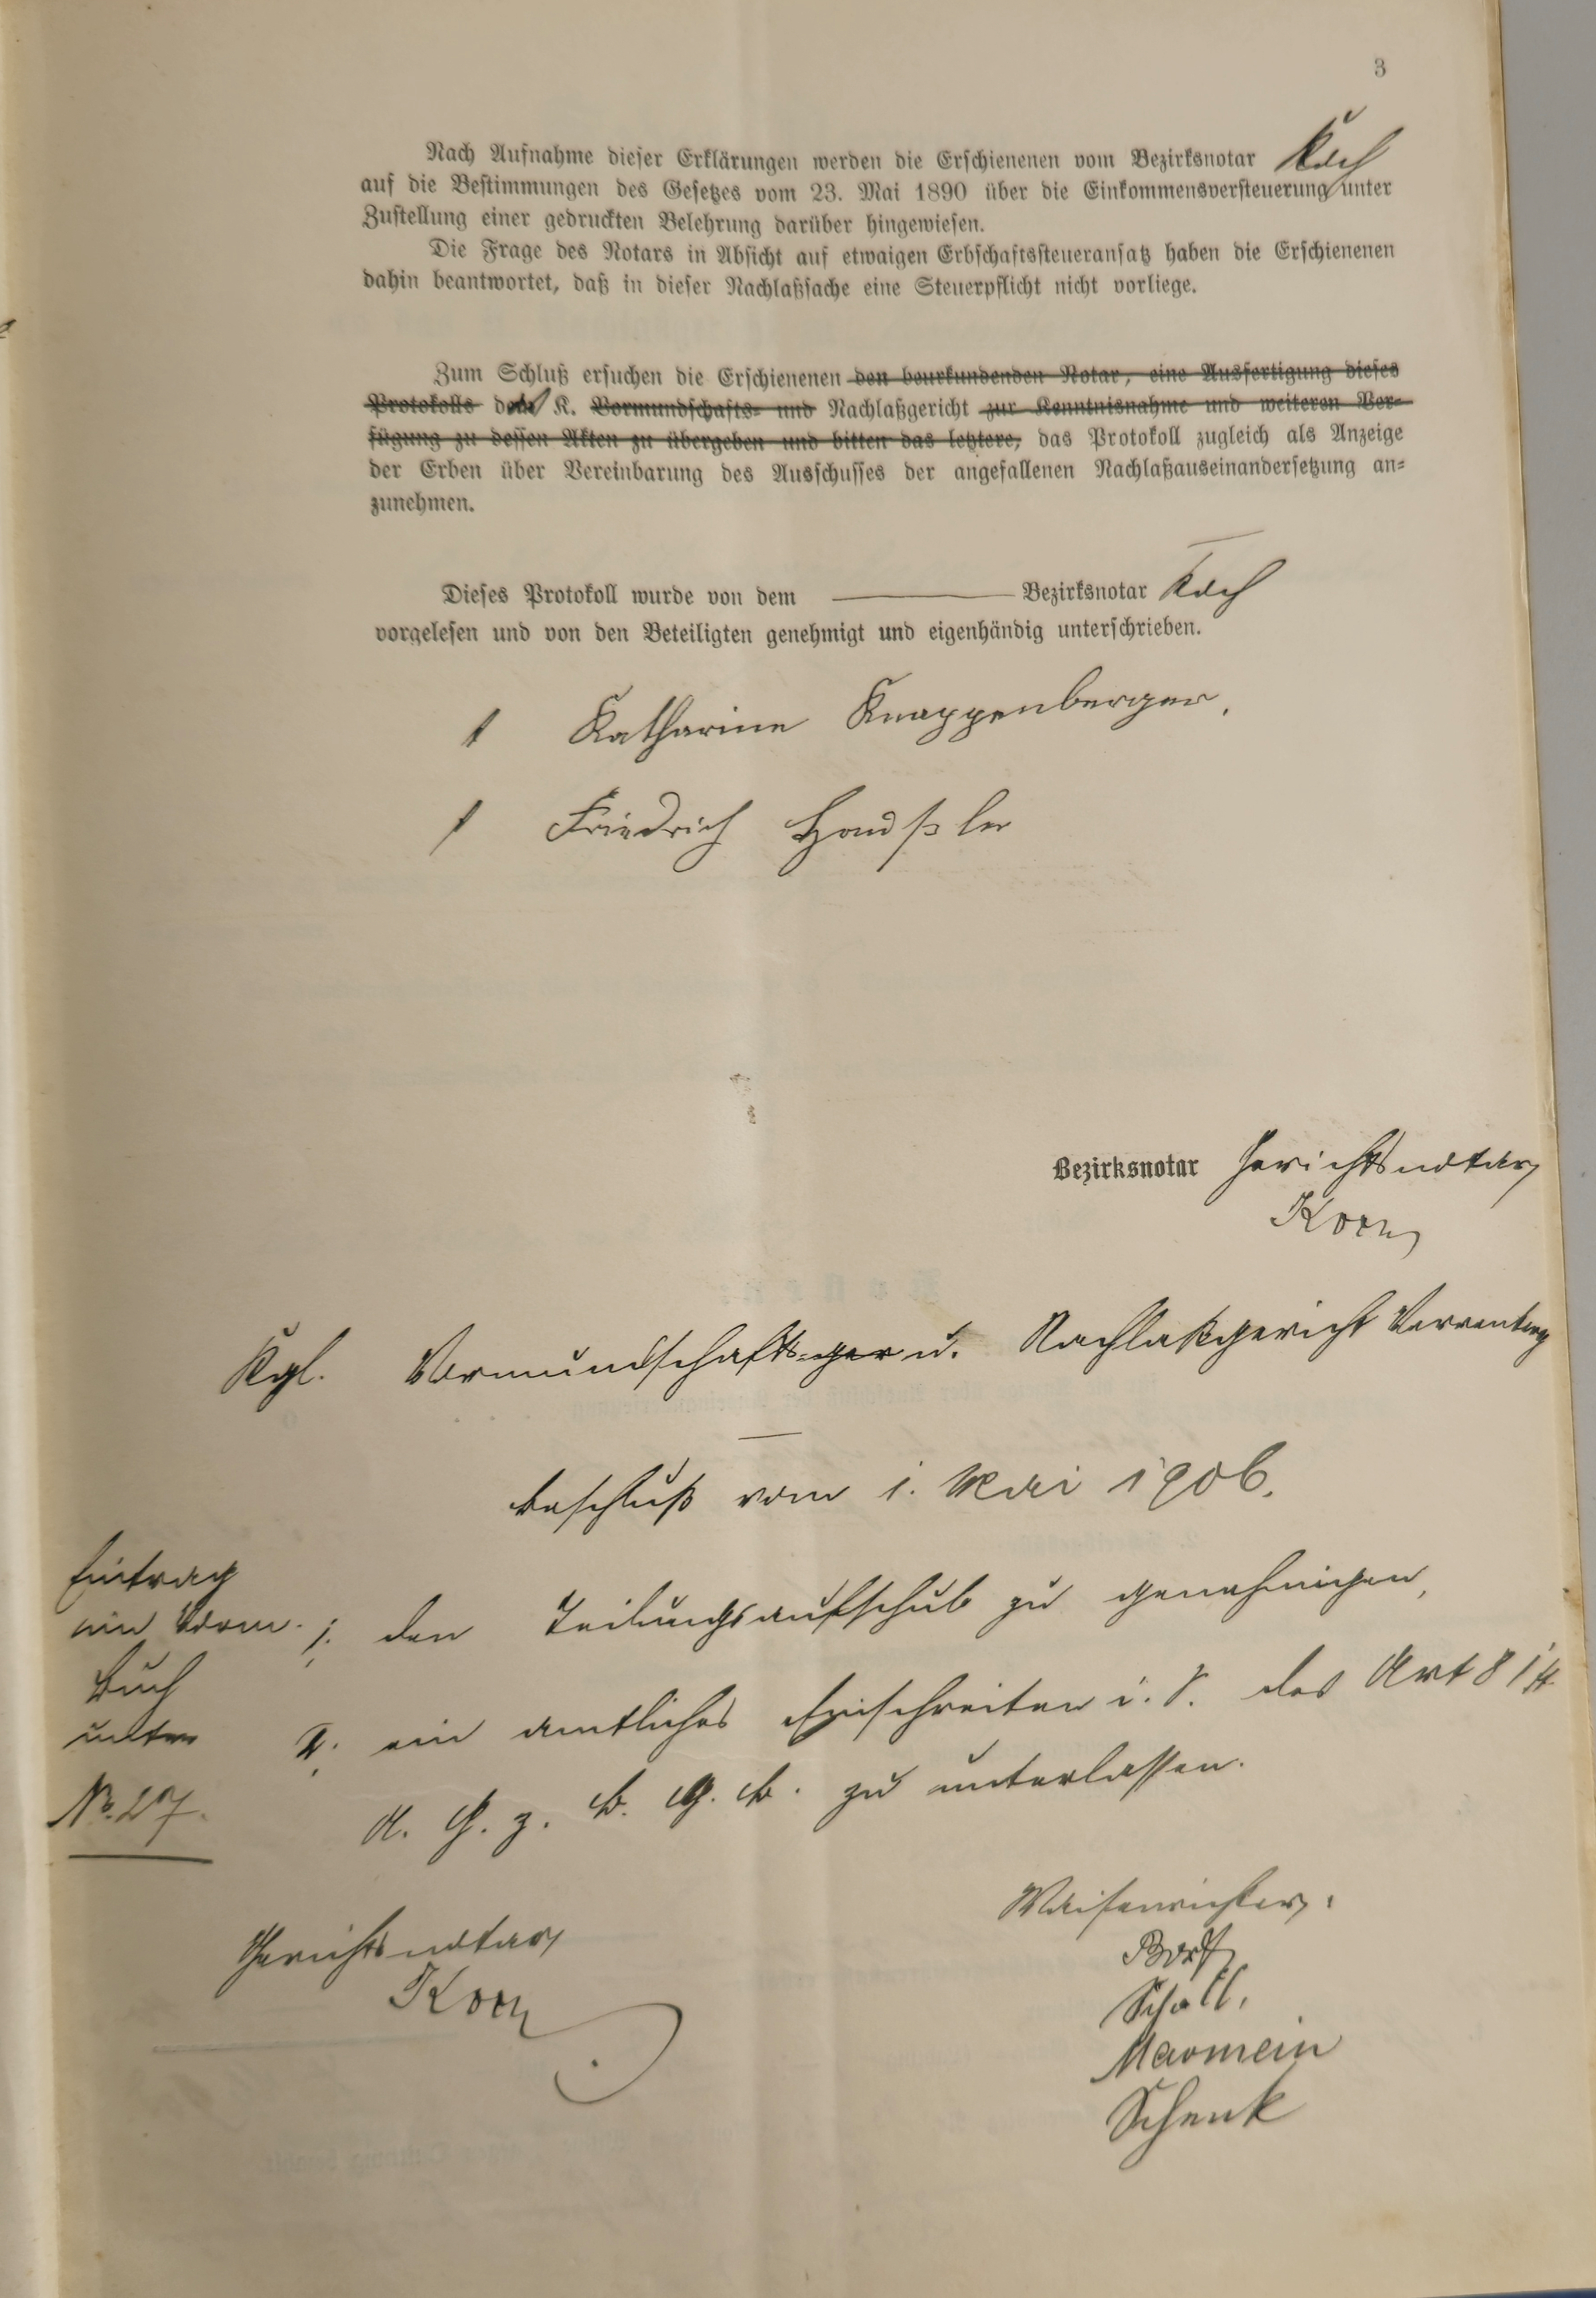 3
Nach Aufnahme dieser Erklärungen werden die Erschienenen vom Bezirksnotar Koch
auf die Bestimmungen des Gesetzes vom 23. Mai 1890 über die Einkommensversteuerung unter
Zustellung einer gedruckten Belehrung darüber hingewiesen.
Die Frage des Notars in Absicht auf etwaigen Erbschaftssteueransatz haben die Erschienenen
dahin beantwortet, daß in dieser Nachlaßsache eine Steuerpflicht nicht vorliege.
Zum Schluß ersuchen die Erschienenen den beurkundenden Notar, eine Ausfertigung dieses
Protokolls das K. Vormundschafts- und Nachlaßgericht zur Kenntnisnahme und weiteren Ver-
fügung zu dessen Akten zu übergeben und bitten das letztere, das Protokoll zugleich als Anzeige
der Erben über Vereinbarung des Ausschusses der angefallenen Nachlaßauseinandersetzung an-
zunehmen.
Dieses Protokoll wurde von dem Bezirksnotar Koch
vorgelesen und von den Beteiligten genehmigt und eigenhändig unterschrieben.
1 Katharine Knappenberger.
1 Friedrich Haußler
Bezirksnotar Gerichtsnotar
Kgl. Vormundschafts-ger u. Nachlaßgericht
Beschluß vom 1. Mai 1906.
Eintrag
im Vorm.
Buch
unter
No. 27.
1. den Teilungsaufschub zu genehmigen,
2. ein amtliches Einschreiten i. S. des Art 81 ff.
A. G. z. B. G. B. zu unterlassen.
Gerichtsnotar
Waisenrichter:
Scholl.
Schenk